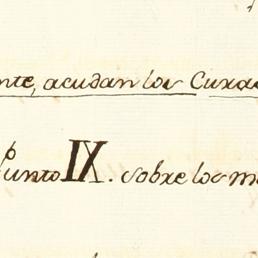 nte, acudan los Cura
Punto IX. sobre los m